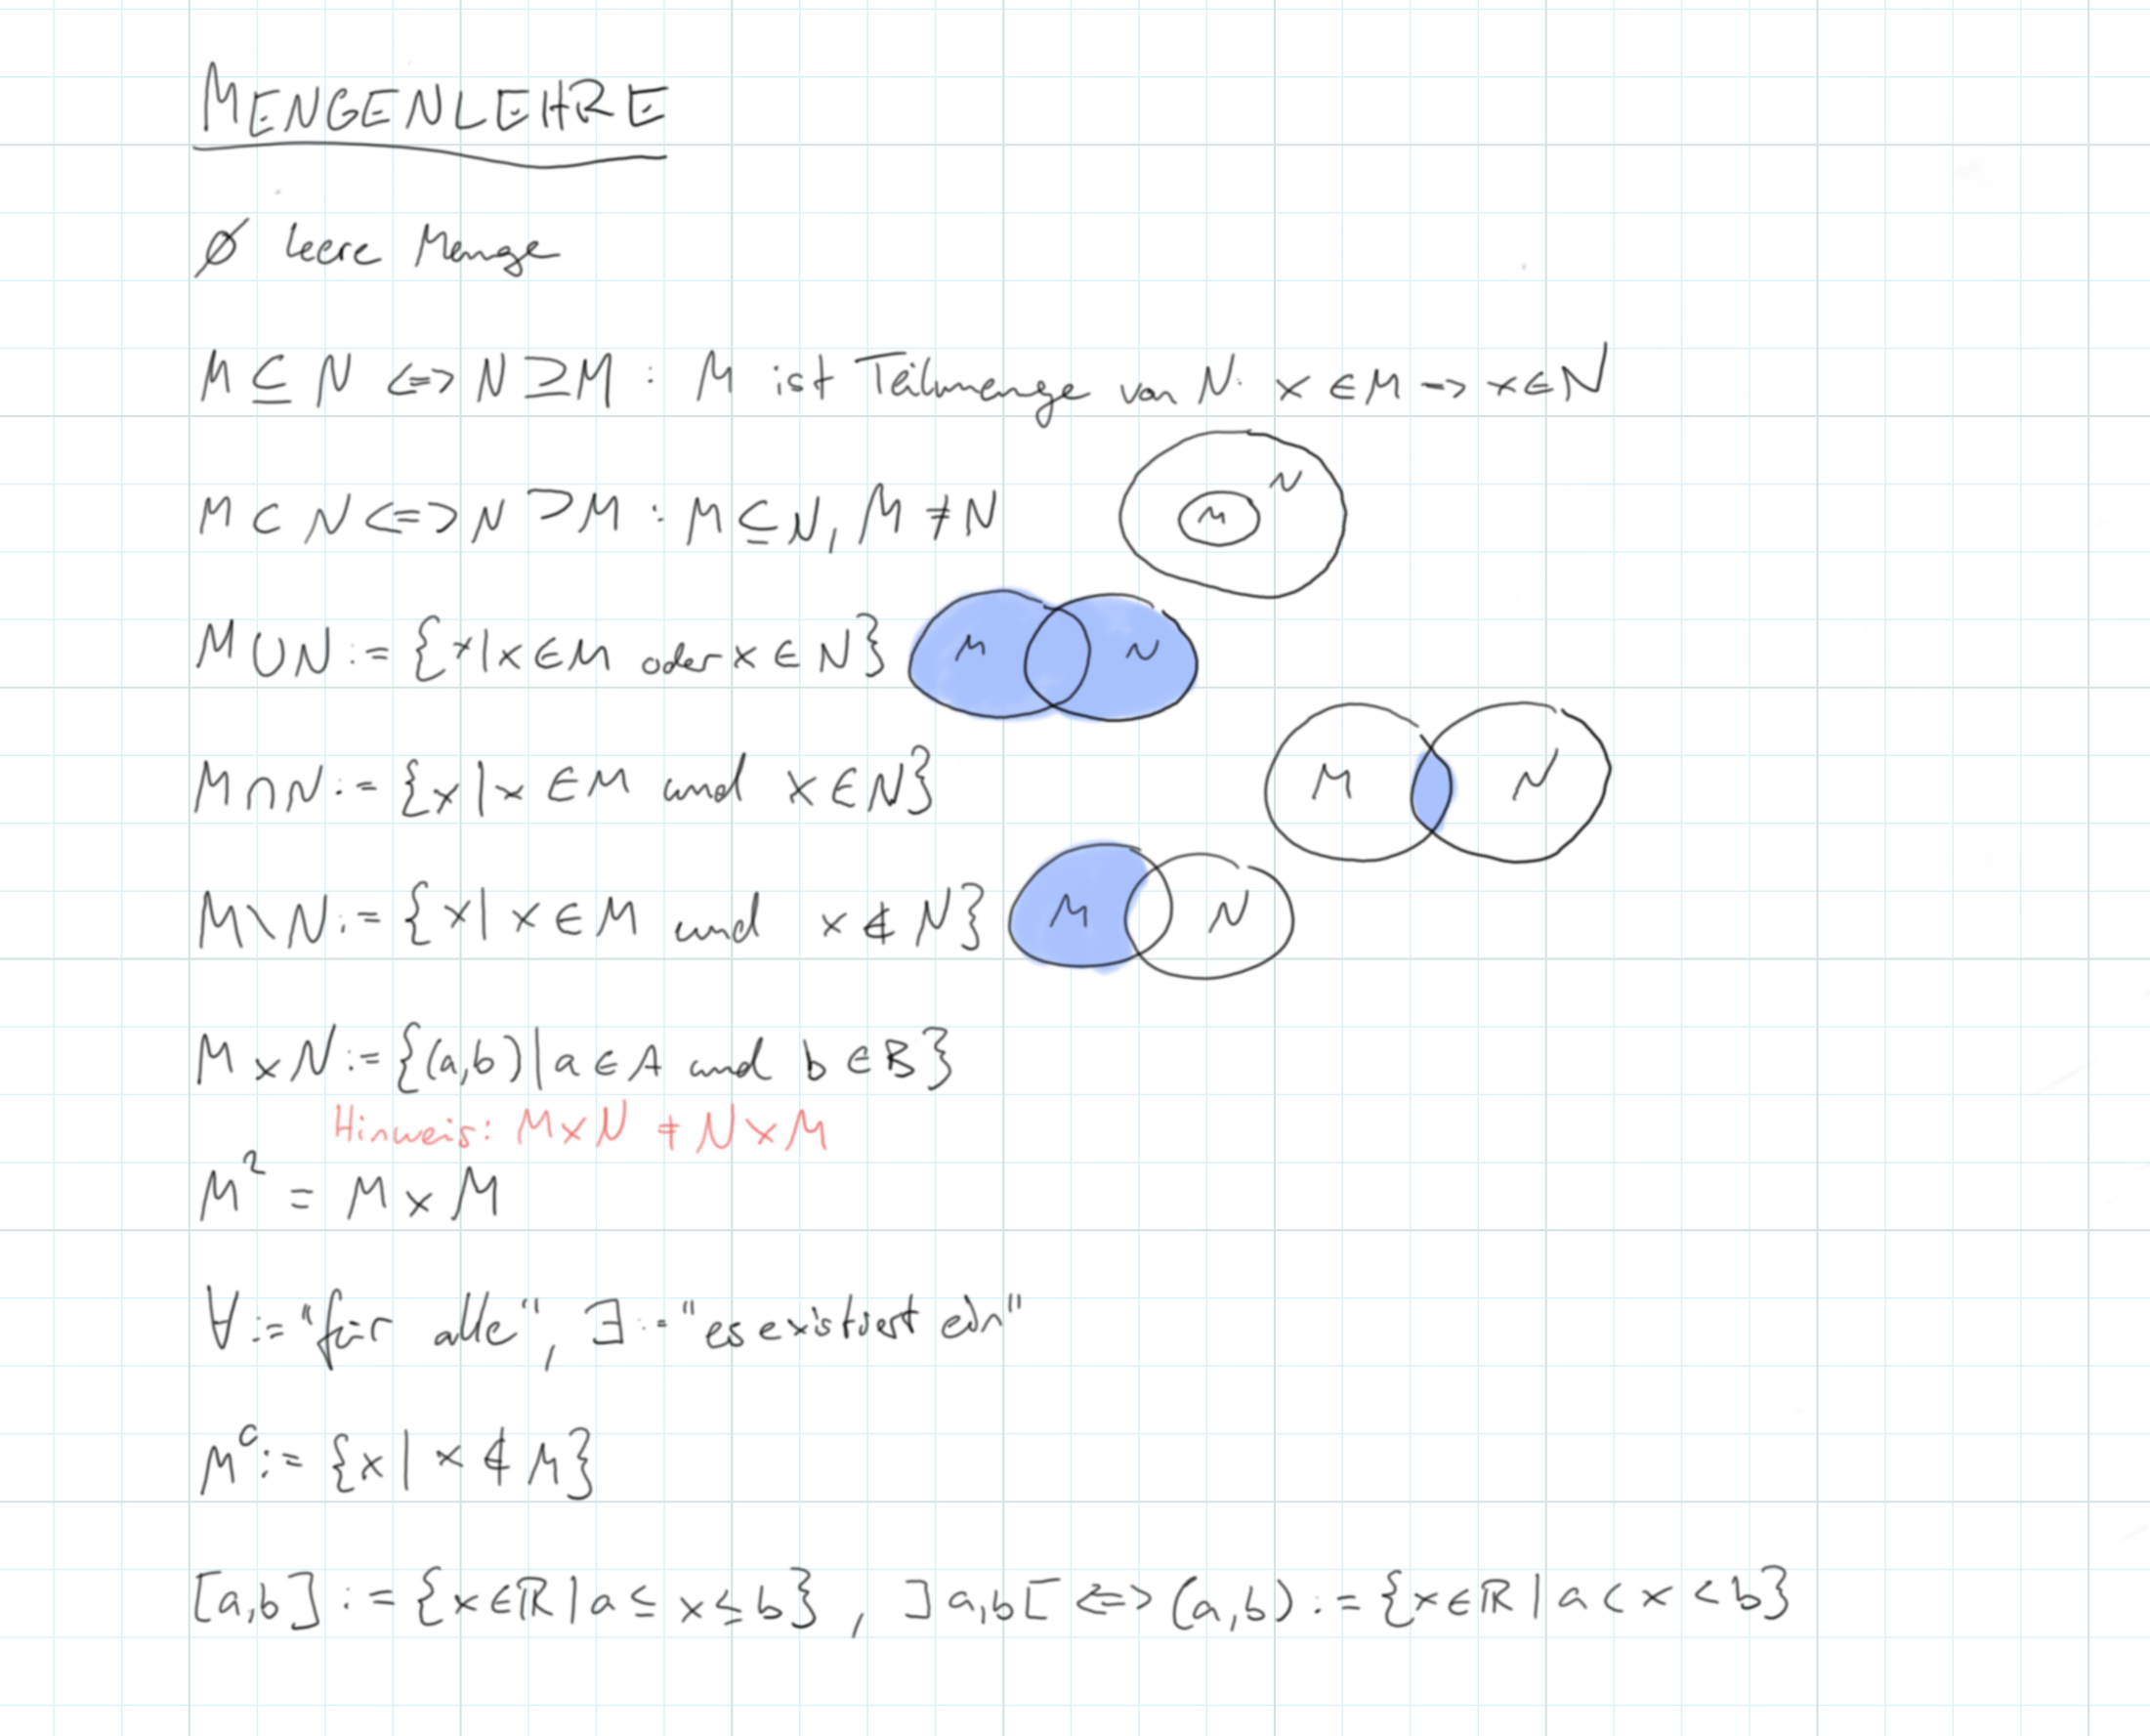 MENGENLEHRE
∅ leere Menge
M ⊆ N <=> N ⊇ M : M ist Teilmenge von N: x ∈ M -> x ∈ N
M ⊂ N <=> N ⊃ M : M ⊆ N, M ≠ N
M N
M ∪ N := {x | x ∈ M oder x ∈ N}
M N
M ∩ N := {x | x ∈ M und x ∈ N}
M N
M \ N := {x | x ∈ M und x ∉ N}
M N
M × N := {(a,b) | a ∈ A und b ∈ B}
Hinweis: M × N ≠ N × M
M² = M × M
∀ := "für alle", ∃ := "es existiert ein"
Mᶜ := {x | x ∉ M}
[a,b] := {x ∈ ℝ | a ≤ x ≤ b}, ]a,b[ <=> (a,b) := {x ∈ ℝ | a < x < b}